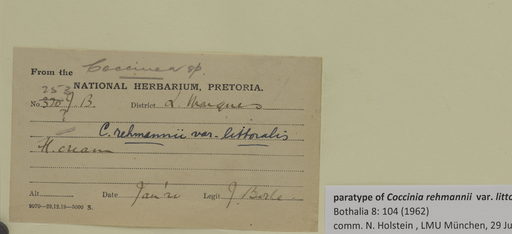 From the Coccinea sp.
NATIONAL HERBARIUM, PRETORIA.
No. J B. District L. Marques
C. rehmannii var. littoralis
cream
Alt. Date Jan '20 Legit J Borle
9079—29.12.19—5000 S.
paratype of Coccinia rehmannii var. litto
Bothalia 8: 104 (1962)
comm. N. Holstein , LMU München, 29 Ju